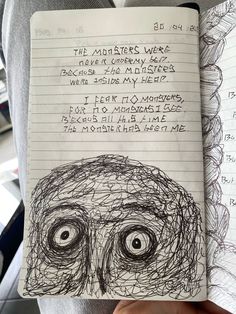 THE MONSTERS WERE
NEVER UNDER MY BED
BECAUSE THE MONSTERS
WERE INSIDE MY HEAD
I FEAR NO MONSTERS,
FOR NO MONSTERS I SEE
BECAUS ALL THIS TIME
THE MONSTER HAS BEEN ME